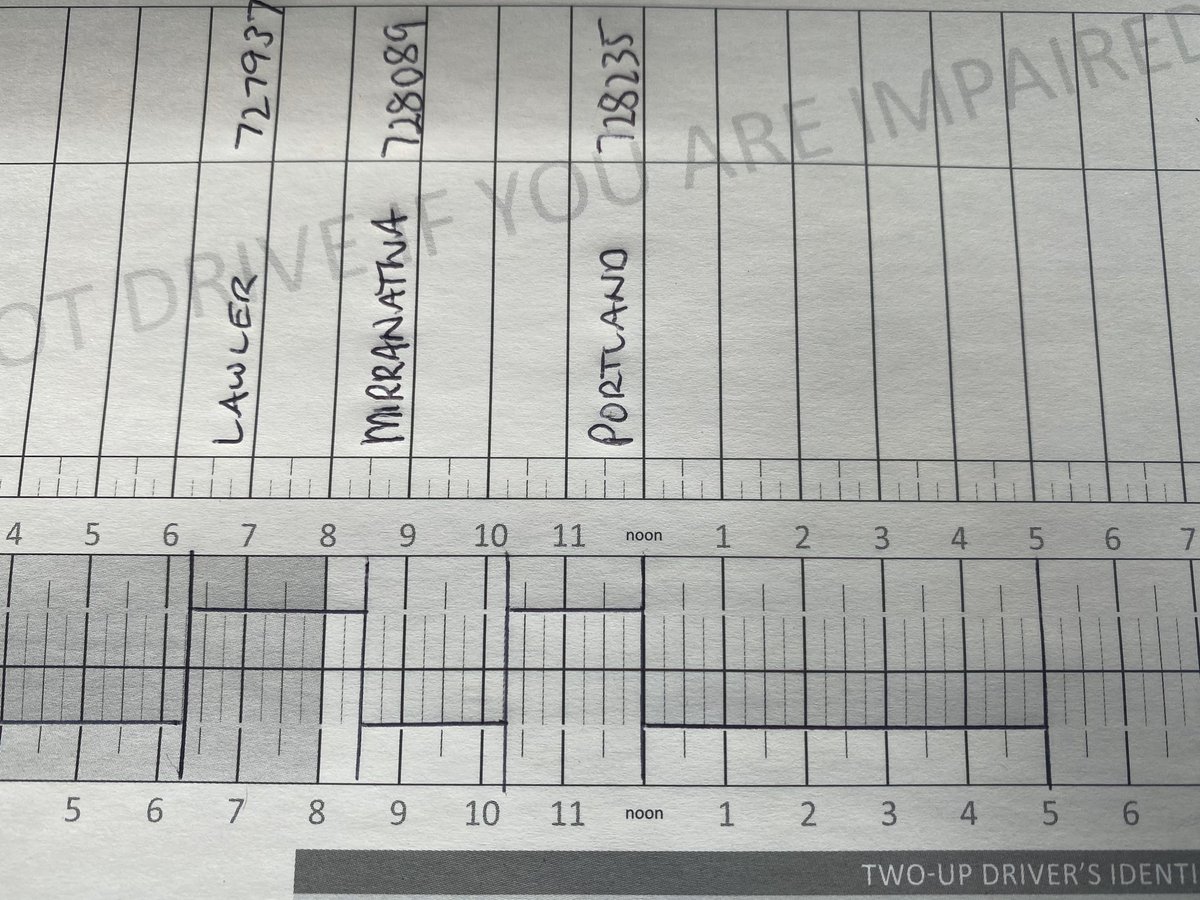 727937
728089
728235
OT DRIVE IF YOU ARE IMPAIRED
LAWLER
MIRRANATWA
PORTLAND
4 5 6 7 8 9 10 11 noon 1 2 3 4 5 6 7
5 6 7 8 9 10 11 noon 1 2 3 4 5 6
TWO-UP DRIVER'S IDENTI